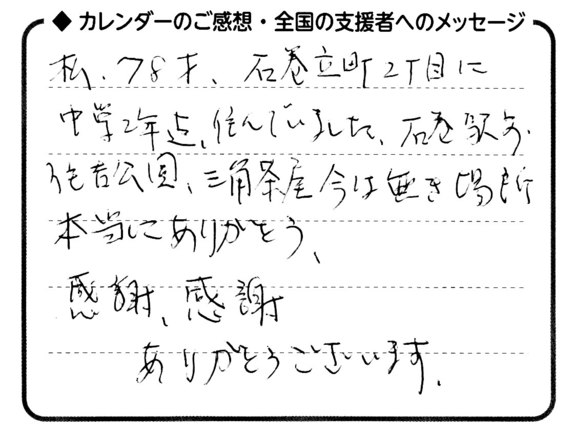 ◆ カレンダーのご感想・全国の支援者へのメッセージ
私、78才、石巻立町2丁目に
中学2年迄、住んでいました、石巻駅前、
住吉公園、三角茶屋今は無き場所
本当にありがとう、
感謝、感謝
ありがとうございます。